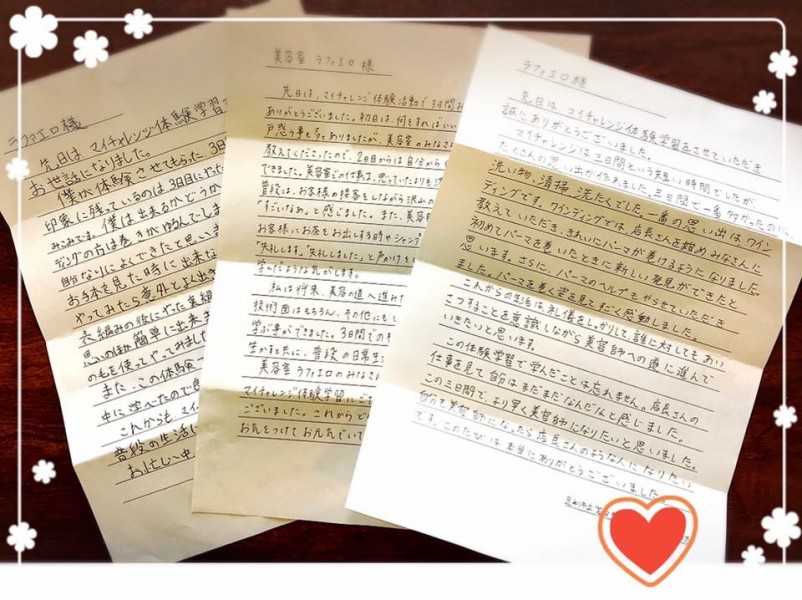 ラファエロ様
先日は、マイチャレンジ体験学習で
お世話になりました。
僕が体験させてもらった、3日
印象に残っているのは3日目にやった
みこみです。僕は出来るかどうか
ディングの方は巻き方がゆるんでしま
自分なりによくできたと思いま
お手本を見た時に出来な
やってみたら意外とよく出き
表編みの後にやった裏編
思いのほか簡単に出来ま
のもを使ってやってみました
また、この体験
中に学べたので良
これからも、マイ
普段の生活に
お忙しい中
美容室 ラファエロ 様
先日は、マイチャレンジ体験活動で3日間お
ありがとうございました。初日は、何をすればいい
戸惑う事も多々ありましたが、美容室のみなさ
教えてくださったので、2日目からは自分から
できました。美容室での仕事は、思っていたよりも
普段は、お客様の接客をしながら沢山の
「すごいなぁ」と感じました。また、美容
お客様にお茶をお出しする時やシャンプ
「失礼します」「失礼しました」と声かけも
学んだような気がします。
私は将来、美容の道へ進みた
技術面はもちろん、その他にも
学ぶ事ができました。3日間での
生かすと共に、普段の日常生
美容室 ラファエロのみなさ
マイチャレンジ体験学習にご
ございました。これからど
お気をつけてお元気でい
ラファエロ様
先日は、マイチャレンジ体験学習をさせていただき
誠にありがとうございました。
マイチャレンジは三日間という短い時間でしたが、
たくさんの思い出が作れました。三日間で一番多かったのが、
洗い物、清掃、洗たくでした。一番の思い出はワイン
ディングです。ワインディングでは、店長さんを始めみなさんに
教えていただき、きれいにパーマが巻けるようになりました。
初めてパーマを巻いたときに新しい発見ができたと
思います。さらに、パーマのヘルプもやらせていただき
ました。パーマを巻く姿を見てすごく感動しました。
これからの生活は礼儀をしっかりして、誰に対してもあい
さつすることを意識しながら美容師への道に進んで
いきたいと思います。
この体験学習で学んだことは忘れません。店長さんの
仕事を見て自分はまだまだなんだなと感じました。
この三日間で、より早く美容師になりたいと思いました。
自分が美容師になったら店長さんのような人になりたい
です。このたびは本当にありがとうございました。